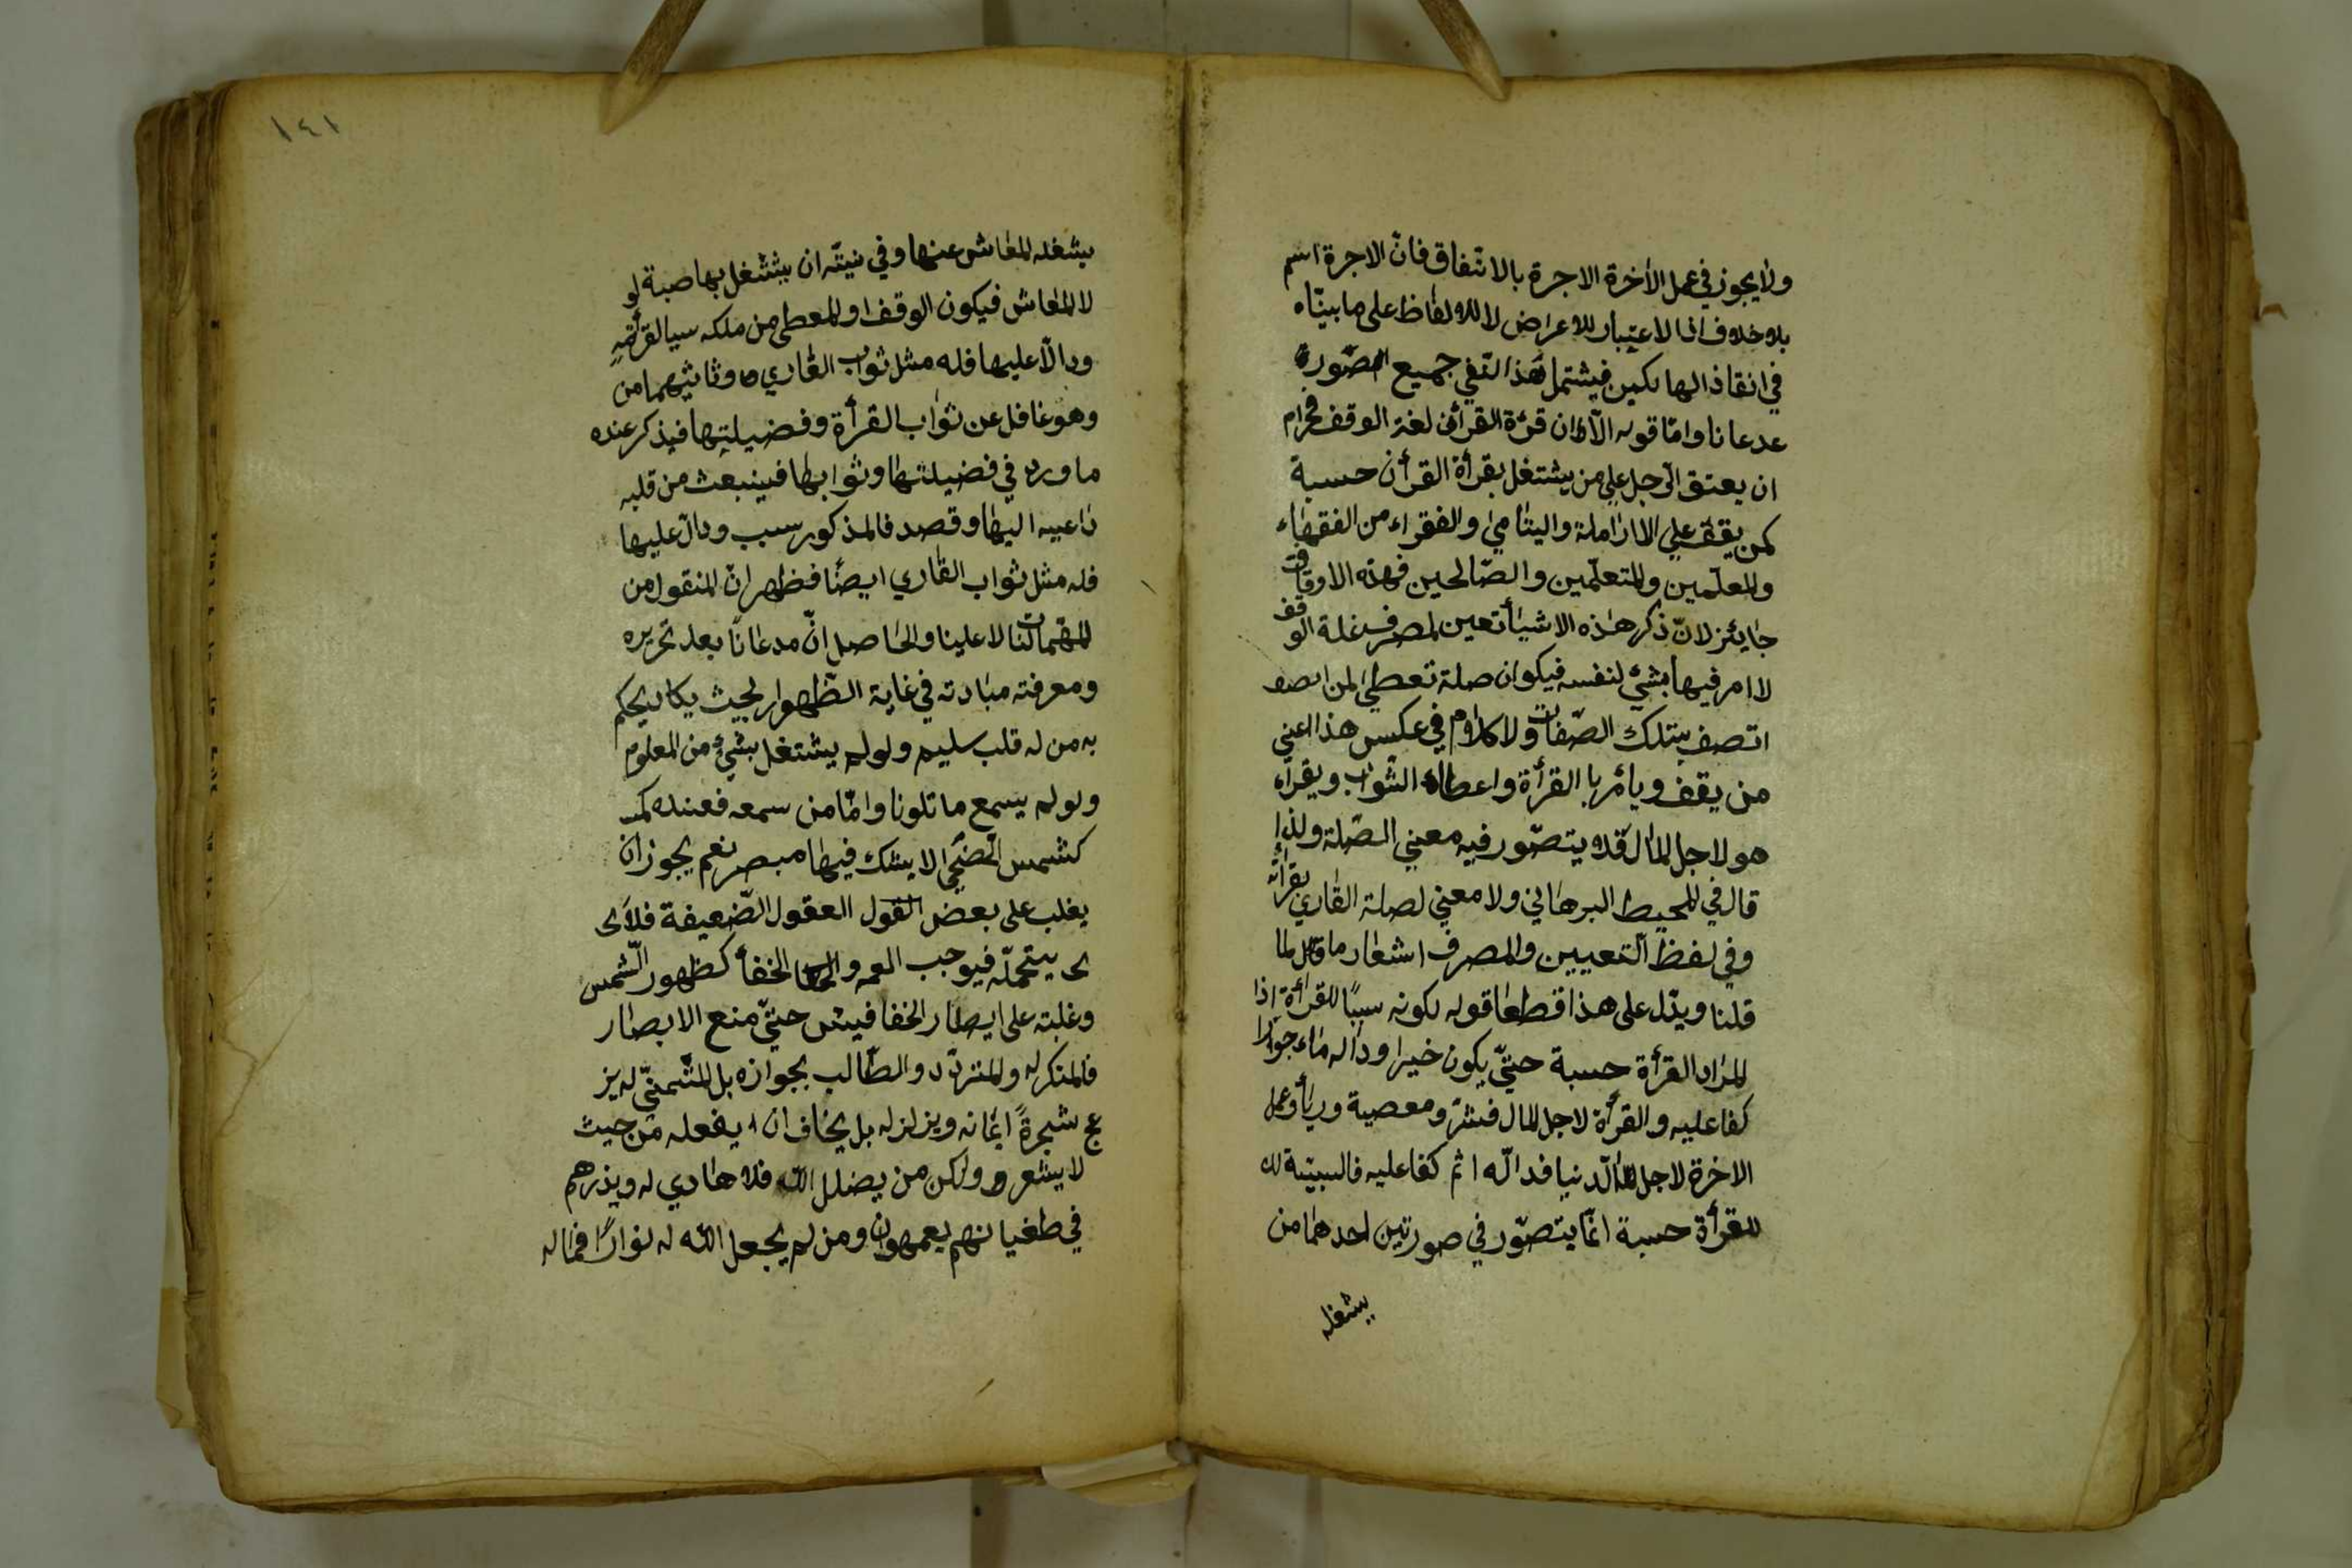 ولا يجوز في عمل الأخرة الاجرة بالاتفاق فانّ الاجرة اسم
بلا خلاف انا لاعتبار للاعراض لا للالفاظ على ما بيّناه
في انقاذ الهالكين فيشتمل هذا النّفي جميع الصّورة
عدعانا وامّا قوله الّا ان قرءة القرأن لغة الوقف فحرام
ان يعتق الرّجل علي من يشتغل بقرأة القرأن حسبة
كمن يقف علي الاراملة واليتامي والفقراء من الفقهاء
والمعلّمين والمتعلّمين والصّالحين فهذه الاوقات
جايئز لانّ ذكر هذه الاشيأ تعين لمصرف غلة الوقف
لا امر فيها بشئ لنفسه فيكوان صلة تعطي لمن
اتصف بتلك الصّفات ولا كلام في عكس هذا اعني
من يقف ويأمر با القرأة واعطاء الثّواب ويقرأه
هو لاجل المال فلا يتصّور فيه معني الصّلة ولذا
قال في المحيط البرهاني ولا معني لصلة القاري بقرأته
وفي لفظ التعيين والمصرف اشعار ما قال لما
قلنا ويدّل على هذا قطعا قوله لكونه سببًا للقرأة اذا
المراد القرأة حسبة حتّي يكون خيرا وداله ماء جوّرا
كفاعليه والقرأة لاجل المال فشرّ ومعصية وريأ وعمل
الاخرة لاجل الدّنيا فدالّه اثم كفاعليه فالسببيّة لل
للقرأة حسبة انّما يتصّور في صورتين احدهما من
يشغله
١٤١
يشغله المعاش عنها وفي نيتّه ان يشتغل بها حسبة لو
لا المعاش فيكون الوقف او المعطي من ملكه سببا لقرأته
ودالّا عليها فله مثل ثواب القاري وثانيهما من
وهو غافل عن ثواب القرأة وفضيلتها فيذكر عنده
ما ورد في فضيلتها وثوابها فينبعث من قلبه
داعيه اليها وقصد فالمذكور سبب ودالّ عليها
فله مثل ثواب القاري ايضًا فظهر انّ المنقول من
المهمّات لنا لا علينا والحاصل انّ مدعانا بعد تحريره
ومعرفته مبادته في غاية الظّهوار بحيث يكا ليحكم
به من له قلب سليم ولولم يشتغل بشئ من المعلوم
ولولم يسمع ما تلونا وامّا من سمعه فعنده كمـ
كشمس الضّحي الا يشك فيها مبصر نعم يجوز ان
يغلب على بعض القول العقول الضّعيفة فلا
يتحمّله فيوجب العمه والخفأ كظهور الشّمس
وغلبته على ابصار الخفافيش حتّي منع الابصار
فالمنكر له والمتردّد والطّالب بجوازه بل المتمنّي له يز
عج شجرةً ايمانه ويزلزله بل يخاف ان ا يفعله من حيث
لا يشعر و ولكن من يضلل الله فلا هادي له ويذرهم
في طغيانهم يعمهوان ومن لم يجعل الله له نوارًا فما له